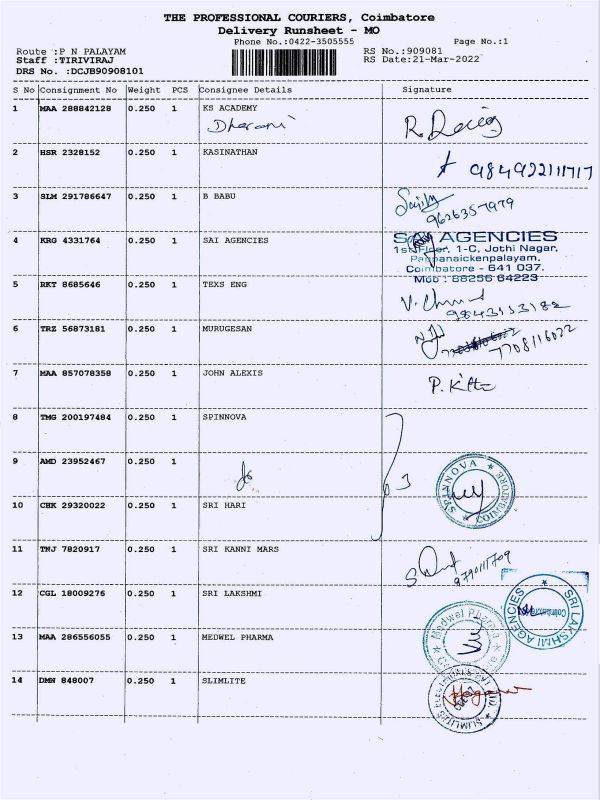 THE PROFESSIONAL COURIERS, Coimbatore
Delivery Runsheet - MO
Phone No.:0422-3505555 Page No.:1
Route :P N PALAYAM RS No.:909081
Staff :TIRIVIRAJ RS Date:21-Mar-2022
DRS No. :DCJB90908101
S No Consignment No Weight PCS Consignee Details Signature
1 MAA 288842128 0.250 1 KS ACADEMY
Dharani
2 HSR 2328152 0.250 1 KASINATHAN
3 SLM 291786647 0.250 1 B BABU
9626357979
4 KRG 4331764 0.250 1 SAI AGENCIES
SAI AGENCIES
1st Floor, 1-C, Jothi Nagar,
Pappanaickenpalayam,
Coimbatore - 641 037.
Mob : 88256 64223
5 RKT 8685646 0.250 1 TEXS ENG
9843153182
6 TRZ 56873181 0.250 1 MURUGESAN
7708116022
7 MAA 857078358 0.250 1 JOHN ALEXIS
8 TMG 200197484 0.250 1 SPINNOVA
9 AMD 23952467 0.250 1
3
SPINNOVA
COIMBATORE
10 CHK 29320022 0.250 1 SRI HARI
11 TMJ 7820917 0.250 1 SRI KANNI MARS
12 CGL 18009276 0.250 1 SRI LAKSHMI
SRI LAKSHMI AGENCIES
Coimbatore
13 MAA 286556055 0.250 1 MEDWEL PHARMA
Medwel Pharma
14 DMN 848007 0.250 1 SLIMLITE
SLIMLITES ELECTRICALS PVT LTD